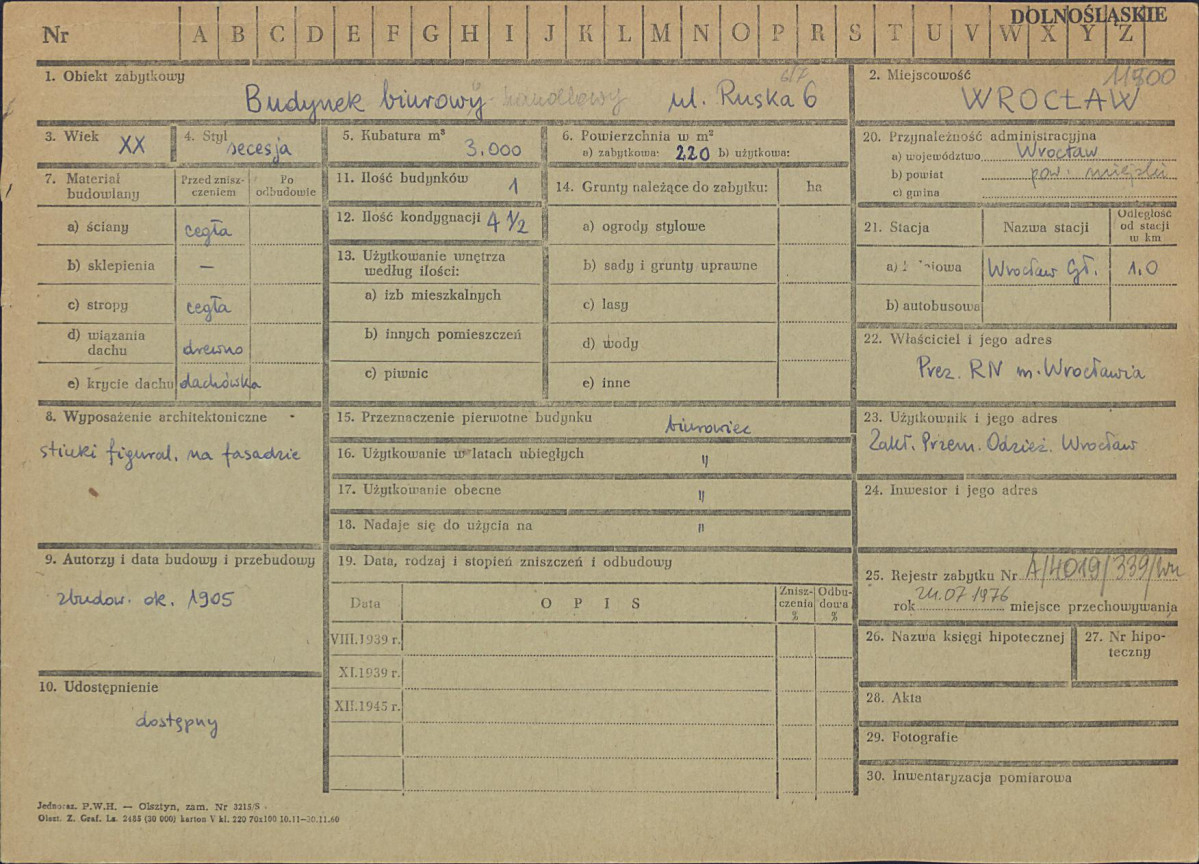 DOLNOŚLĄSKIE
Nr A B C D E F G H I J K L M N O P R S T U V W X Y Z
1. Obiekt zabytkowy
6/7
Budynek biurowy-handlowy ul. Ruska 6
2. Miejscowość
11300
WROCŁAW
3. Wiek XX
4. Styl secesja
5. Kubatura m³ 3.000
6. Powierzchnia w m²
a) zabytkowa: 220 b) użytkowa:
7. Materiał budowlany
Przed zniszczeniem
Po odbudowie
a) ściany cegła
b) sklepienia —
c) stropy cegła
d) wiązania dachu drewno
e) krycie dachu dachówka
8. Wyposażenie architektoniczne
stiuki figural. na fasadzie
9. Autorzy i data budowy i przebudowy
zbudow. ok. 1905
10. Udostępnienie
dostępny
11. Ilość budynków 1
12. Ilość kondygnacji 4 1/2
13. Użytkowanie wnętrza według ilości:
a) izb mieszkalnych
b) innych pomieszczeń
c) piwnic
14. Grunty należące do zabytku: ha
a) ogrody stylowe
b) sady i grunty uprawne
c) lasy
d) wody
e) inne
15. Przeznaczenie pierwotne budynku biurowiec
16. Użytkowanie w latach ubiegłych "
17. Użytkowanie obecne "
18. Nadaje się do użycia na "
19. Data, rodzaj i stopień zniszczeń i odbudowy
Data OPIS Zniszczenia % Odbudowa %
VIII.1939 r.
XI.1939 r.
XII.1945 r.
20. Przynależność administracyjna
a) województwo Wrocław
b) powiat pow. miejski
c) gmina
21. Stacja Nazwa stacji Odległość od stacji w km
a) Wrocław Gł. 1.0
b) autobusowa
22. Właściciel i jego adres
Prez. RN m. Wrocławia
23. Użytkownik i jego adres
Zakł. Przem. Odzież. Wrocław
24. Inwestor i jego adres
25. Rejestr zabytku Nr A/4019/339/Wm
rok 24.07 1976 miejsce przechowywania
26. Nazwa księgi hipotecznej
27. Nr hipoteczny
28. Akta
29. Fotografie
30. Inwentaryzacja pomiarowa
Jednoraz. P.W.H. — Olsztyn, zam. Nr 3215/S
Olszt. Z. Graf. Ls. 2485 (30 000) karton V kl. 220 70x100 10.11—30.11.60